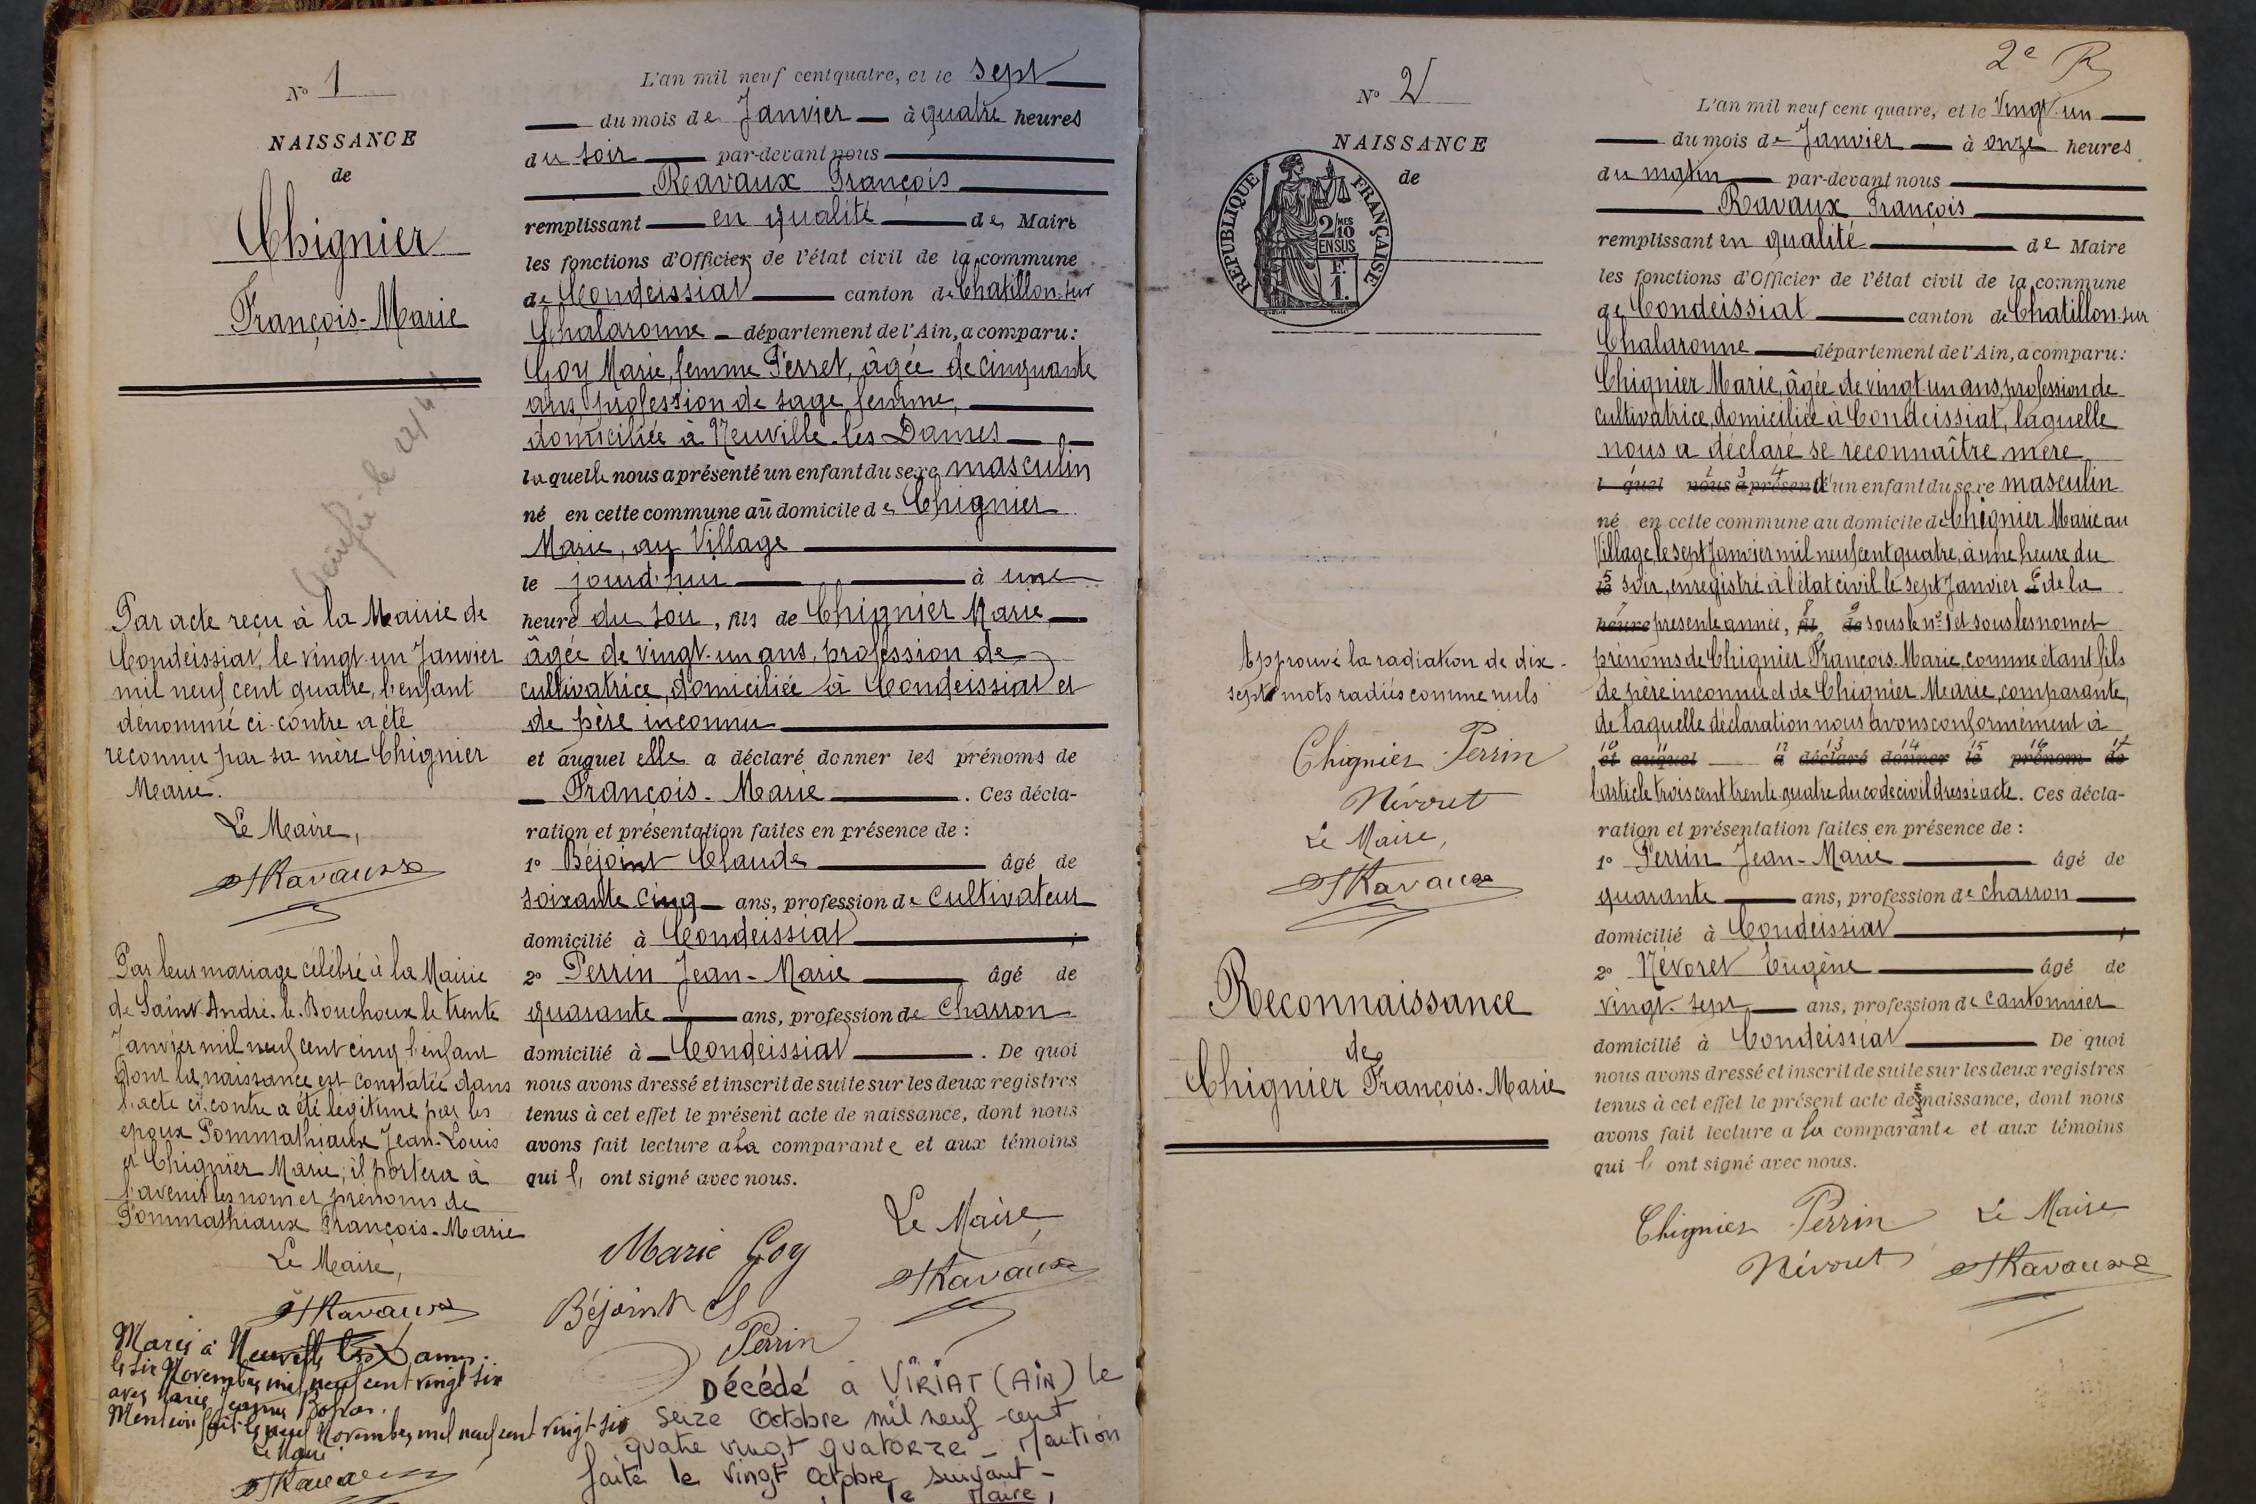 N° 1
NAISSANCE
de
Chignier
François-Marie
Par acte reçu à la Mairie de
Condeissiat, le vingt-un Janvier
mil neuf cent quatre, l'enfant
dénommé ci-contre a été
reconnu par sa mère Chignier
Marie.
Le Maire,
Ravaux
Par leur mariage célébré à la Mairie
de Saint-André-le-Bouchoux le trente
Janvier mil neuf cent cinq l'enfant
dont la naissance est constatée dans
l'acte ci-contre a été légitimé par les
époux Pommathiaux Jean-Louis
et Chignier Marie; il portera à
l'avenir les nom et prénoms de
Pommathiaux François-Marie
Le Maire,
Ravaux
Marié à Neuville les Dames
le six Novembre mil neuf cent vingt six
avec Marie Jeanne
Mention faite le neuf Novembre mil neuf cent vingt six
Le Maire
L'an mil neuf cent quatre, et le sept
du mois de Janvier à quatre heures
du soir par-devant nous
Ravaux François
remplissant en qualité de Maire
les fonctions d'Officier de l'état civil de la commune
de Condeissiat canton de Chatillon-sur
Chalaronne département de l'Ain, a comparu:
Goy Marie, femme Perret, âgée de cinquante
ans, profession de sage femme,
domiciliée à Neuville-les-Dames
laquelle nous a présenté un enfant du sexe masculin
né en cette commune au domicile de Chignier
Marie, au Village
le jourd'hui à une
heure du soir, fils de Chignier Marie
âgée de vingt-un ans, profession de
cultivatrice, domiciliée à Condeissiat et
de père inconnu
et auquel elle a déclaré donner les prénoms de
François-Marie. Ces décla-
ration et présentation faites en présence de :
1° Béjoint Claude âgé de
soixante cinq ans, profession de cultivateur
domicilié à Condeissiat ;
2° Perrin Jean-Marie âgé de
quarante ans, profession de charron
domicilié à Condeissiat. De quoi
nous avons dressé et inscrit de suite sur les deux registres
tenus à cet effet le présent acte de naissance, dont nous
avons fait lecture à la comparante et aux témoins
qui ont signé avec nous.
Le Maire,
Marie Goy
Ravaux
Béjoint Cl
Perrin
Décédé à VIRIAT (AIN) le
seize Octobre mil neuf-cent
quatre vingt quatorze - Mention
faite le vingt octobre suivant -
le Maire,
2e R
N° 2
NAISSANCE
de
RÉPUBLIQUE FRANÇAISE
2/10 MES
EN SUS
F.
1.
Approuvé la radiation de dix-
sept mots radiés comme nuls
Chignier Perrin
Névoret
Le Maire,
Ravaux
Reconnaissance
de
Chignier François-Marie
L'an mil neuf cent quatre, et le vingt-un
du mois de Janvier à onze heures
du matin par-devant nous
Ravaux François
remplissant en qualité de Maire
les fonctions d'Officier de l'état civil de la commune
de Condeissiat canton de Chatillon-sur
Chalaronne département de l'Ain, a comparu:
Chignier Marie, âgée de vingt un ans, profession de
cultivatrice, domiciliée à Condeissiat, laquelle
nous a déclaré se reconnaître mère
1 2 3 4
l quel nous a présen d'un enfant du sexe masculin
né en cette commune au domicile de Chignier Marie au
Village, le sept Janvier mil neuf cent quatre, à une heure du
5 le soir, enregistré à l'état civil le sept Janvier 6 à de la
7 heure présente année, 8 fil 9 de sous le n° 1 et sous les nom et
prénoms de Chignier François-Marie, comme étant fils
de père inconnu et de Chignier Marie, comparante,
de laquelle déclaration nous avons conformément à
10 11 12 13 14 15 16 17
et auquel a déclaré donner le prénom de
l'article trois cent trente quatre du code civil dressé acte. Ces décla-
ration et présentation faites en présence de :
1° Perrin Jean-Marie âgé de
quarante ans, profession de charron
domicilié à Condeissiat ;
2° Névoret Eugène âgé de
vingt-sept ans, profession de cantonnier
domicilié à Condeissiat De quoi
nous avons dressé et inscrit de suite sur les deux registres
tenus à cet effet le présent acte de naissance, dont nous
avons fait lecture a la comparante et aux témoins
qui ont signé avec nous.
Chignier Perrin Le Maire
Névoret Ravaux